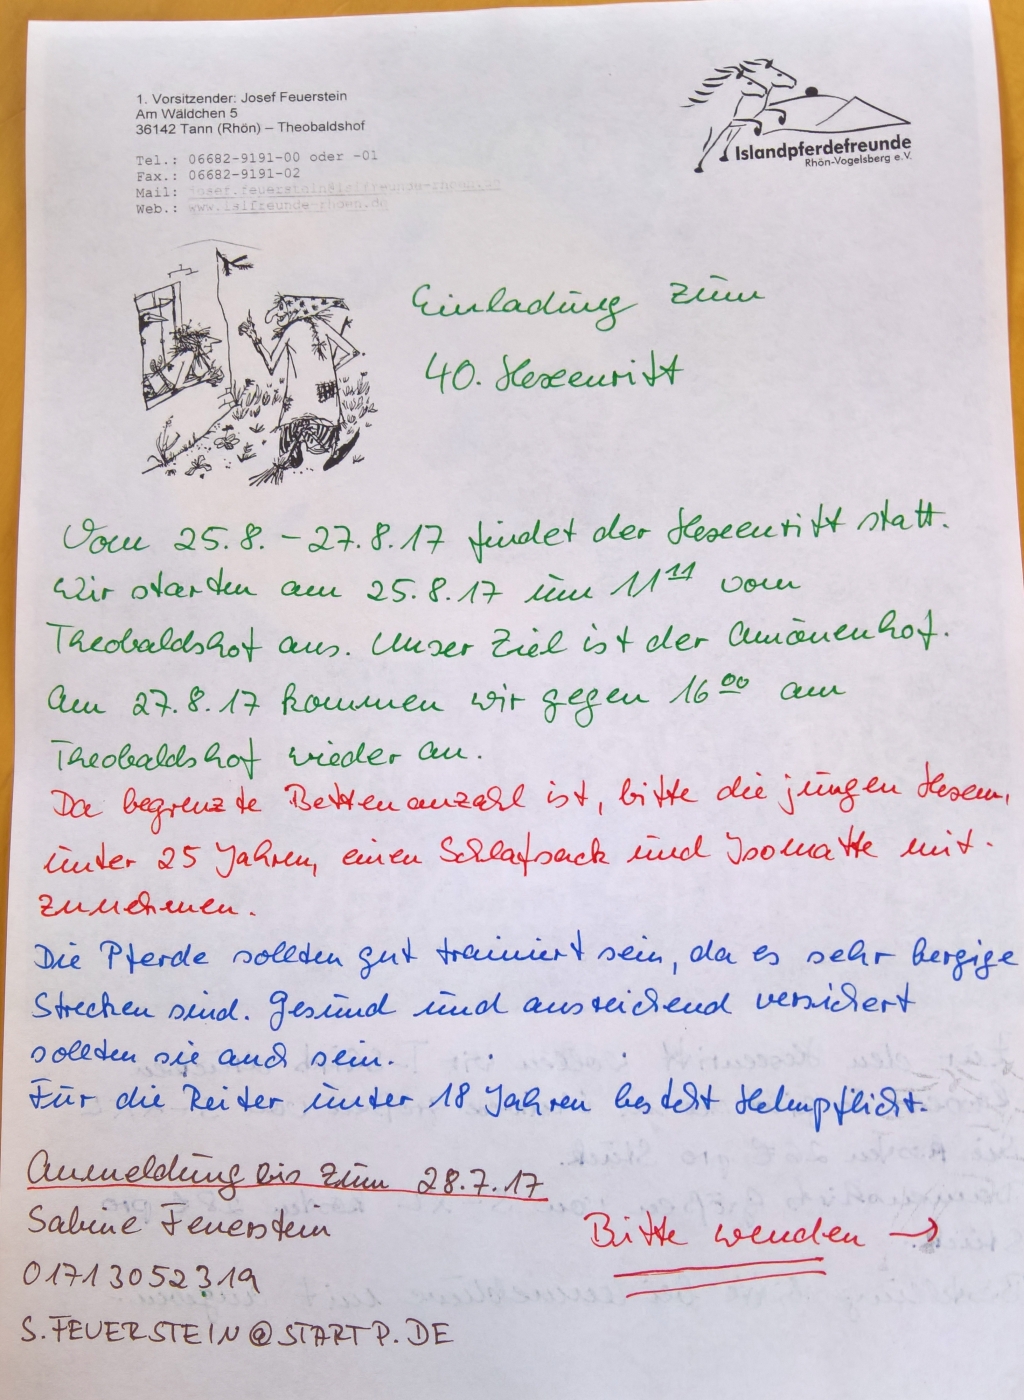 1. Vorsitzender: Josef Feuerstein
Am Wäldchen 5
36142 Tann (Rhön) – Theobaldshof
Tel.: 06682-9191-00 oder -01
Fax.: 06682-9191-02
Mail:
Web.: www.islfreunde-rhoen.de
Islandpferdefreunde
Rhön-Vogelsberg e.V.
Einladung zum
40. Hexenritt
Vom 25.8. – 27.8.17 findet der Hexenritt statt.
Wir starten am 25.8.17 um 11¹¹ vom
Theobaldshof aus. Unser Ziel ist der Amönenhof.
Am 27.8.17 kommen wir gegen 16⁰⁰ am
Theobaldshof wieder an.
Da begrenzte Bettenanzahl ist, bitte die jungen Hexen,
unter 25 Jahren, einen Schlafsack und Isomatte mit-
zunehmen.
Die Pferde sollten gut trainiert sein, da es sehr bergige
Strecken sind. Gesund und ausreichend versichert
sollten sie auch sein.
Für die Reiter unter 18 Jahren besteht Helmpflicht.
Anmeldung bis zum 28.7.17
Sabine Feuerstein
Bitte wenden →
01713052319
S.FEUERSTEIN@STARTP.DE